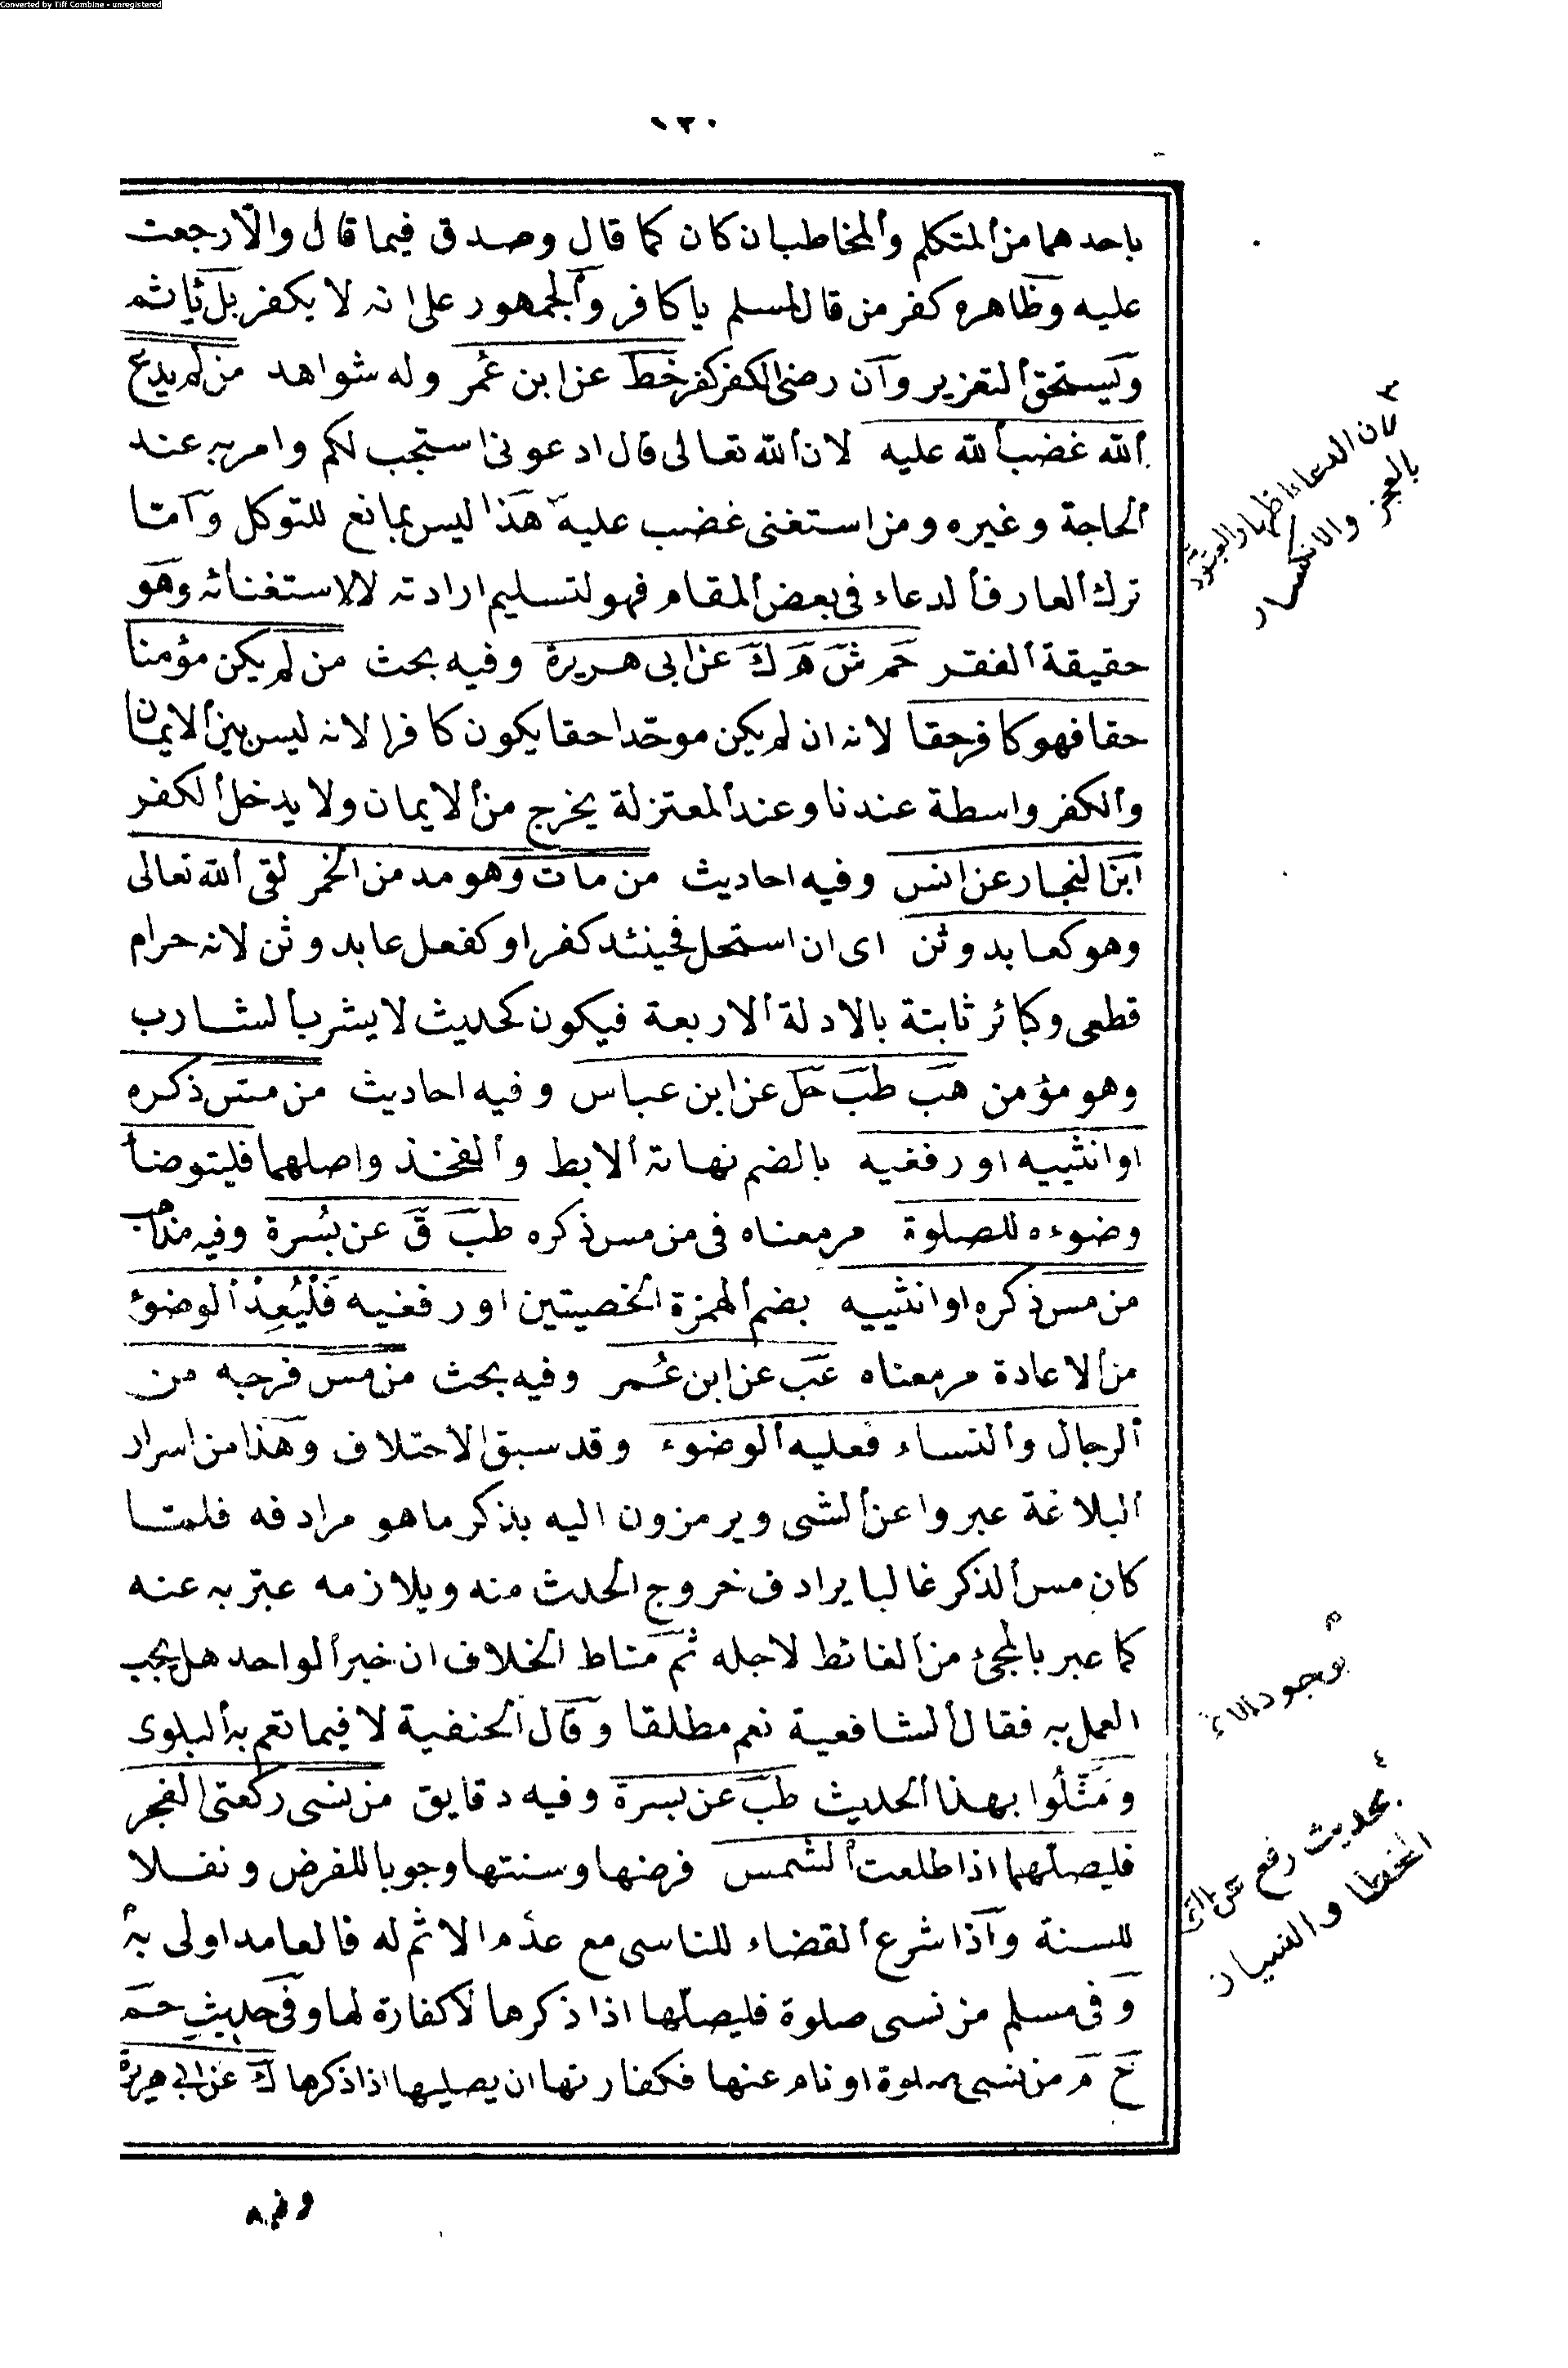 Converted by Tiff Combine - unregistered
١٣٠
باحدهما من المتكلم والمخاطب ان كان كما قال وصدق فيما قال والا رجعت
عليه وظاهره كفر من قال لمسلم يا كافر والجمهور على انه لا يكفر بل يأثم
ويستحق التعزير وان رضى الكفر كفر خط عن ابن عُمر وله شواهد من لم يدع
الله غضب الله عليه لان الله تعالى قال ادعونى استجب لكم وامر به عند
الحاجة وغيره ومن استغنى غضب عليه ٣ هذا ليس بمانع للتوكل وامّا
ترك العارف الدعاء فى بعض المقام فهو لتسليم ارادته لا لاستغنائه وهو
حقيقة الفقر حم ش ه ك عن ابى هريرة وفيه بحث من لم يكن مؤمنا
حقا فهو كافر حقا لانه ان لم يكن موحّدا حقا يكون كافرا لانه ليس بين الايمان
والكفر واسطة عندنا وعند المعتزلة يخرج من الايمان ولا يدخل الكفر
ابن النجار عن انس وفيه احاديث من مات وهو مدمن الخمر لقى الله تعالى
وهو كعابد وثن اى ان استحل فحينئذ كفر او كفعل عابد وثن لانه حرام
قطعى وكبائر ثابتة بالادلة الاربعة فيكون كحديث لا يشرب الشارب
وهو مؤمن هب طب حل عن ابن عباس وفيه احاديث من مسّ ذكره
او انثييه او رفغيه بالضم نهاية الابط والفخذ واصلهما فليتوضأ
وضوءه للصلوة مر معناه فى من مس ذكره طب ق عن بُسرة وفيه
من مس ذكره او انثييه بضم الهمزة الخصيتين او رفغيه فَلْيُعِدْ الوضوء
من الاعادة مر معناه عب عن ابن عُمر وفيه بحث من مس فرجه من
الرجال والنساء فعليه الوضوء وقد سبق الاختلاف وهذا من اسرار
البلاغة عبروا عن الشى ويرمزون اليه بذكر ما هو مرادفه فلمّا
كان مس الذكر غالبا يرادف خروج الحدث منه ويلازمه عبّر به عنه
كما عبر بالمجئ من الغائط لاجله ثم مناط الخلاف ان خبر الواحد هل يجب
العمل به فقال الشافعية نعم مطلقا وقال الحنفية لا فيما تعم به البلوى
ومَثَّلُوا بهذا الحديث طب عن بسرة وفيه دقايق من نسى ركعتى الفجر
فليصلّهما اذا طلعت الشمس فرضها وسنتها وجوبا للفرض ونفلا
للسنة واذا شرع القضاء للناسى مع عدم الاثم له فالعامد اولى به
وفى مسلم من نسى صلوة فليصلّها اذا ذكرها لا كفارة لها وفى حديث حم
خ م من نسى صلوة او نام عنها فكفارتها ان يصليها اذا ذكرها ك عن ابى هريرة
وفيه
٣
لان الدعاء اظهار
بالعجز والانكسار
م
بوجود
٤
بحديث رفع عن
الخطا والنسيان